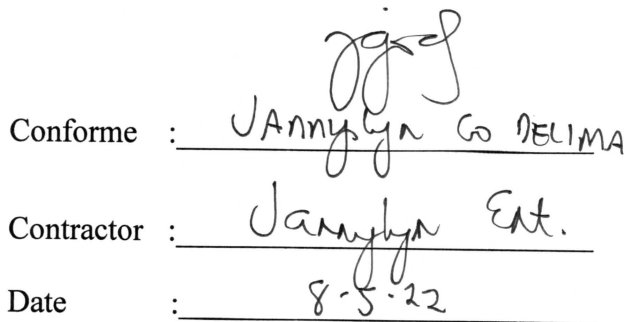 Conforme : Jannylyn Go Delima
Contractor : Jannylyn Ent.
Date : 8-5-22